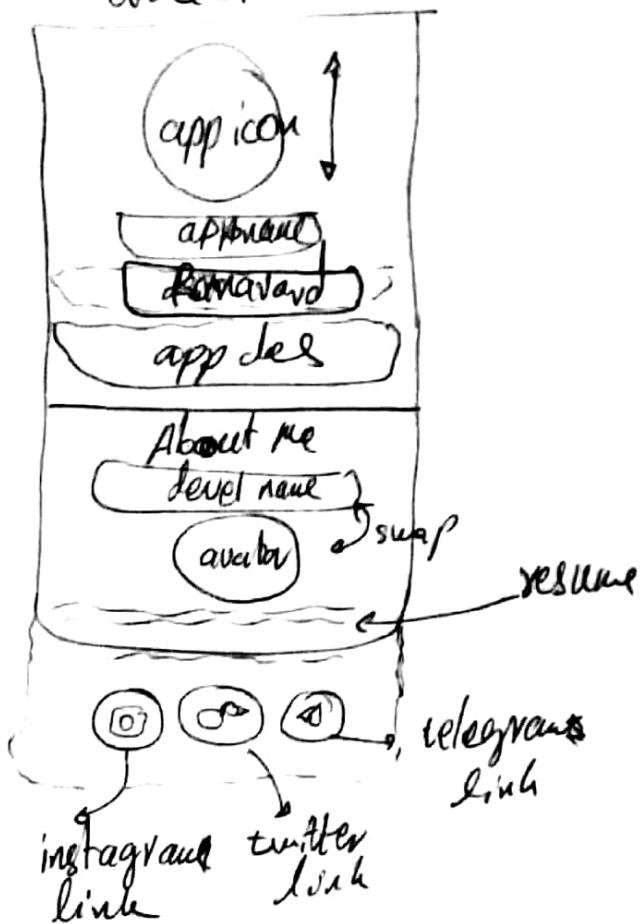 app icon
app name
app des
About Me
devel name
swap
avatar
resume
telegram
link
instagram
link
twitter
link